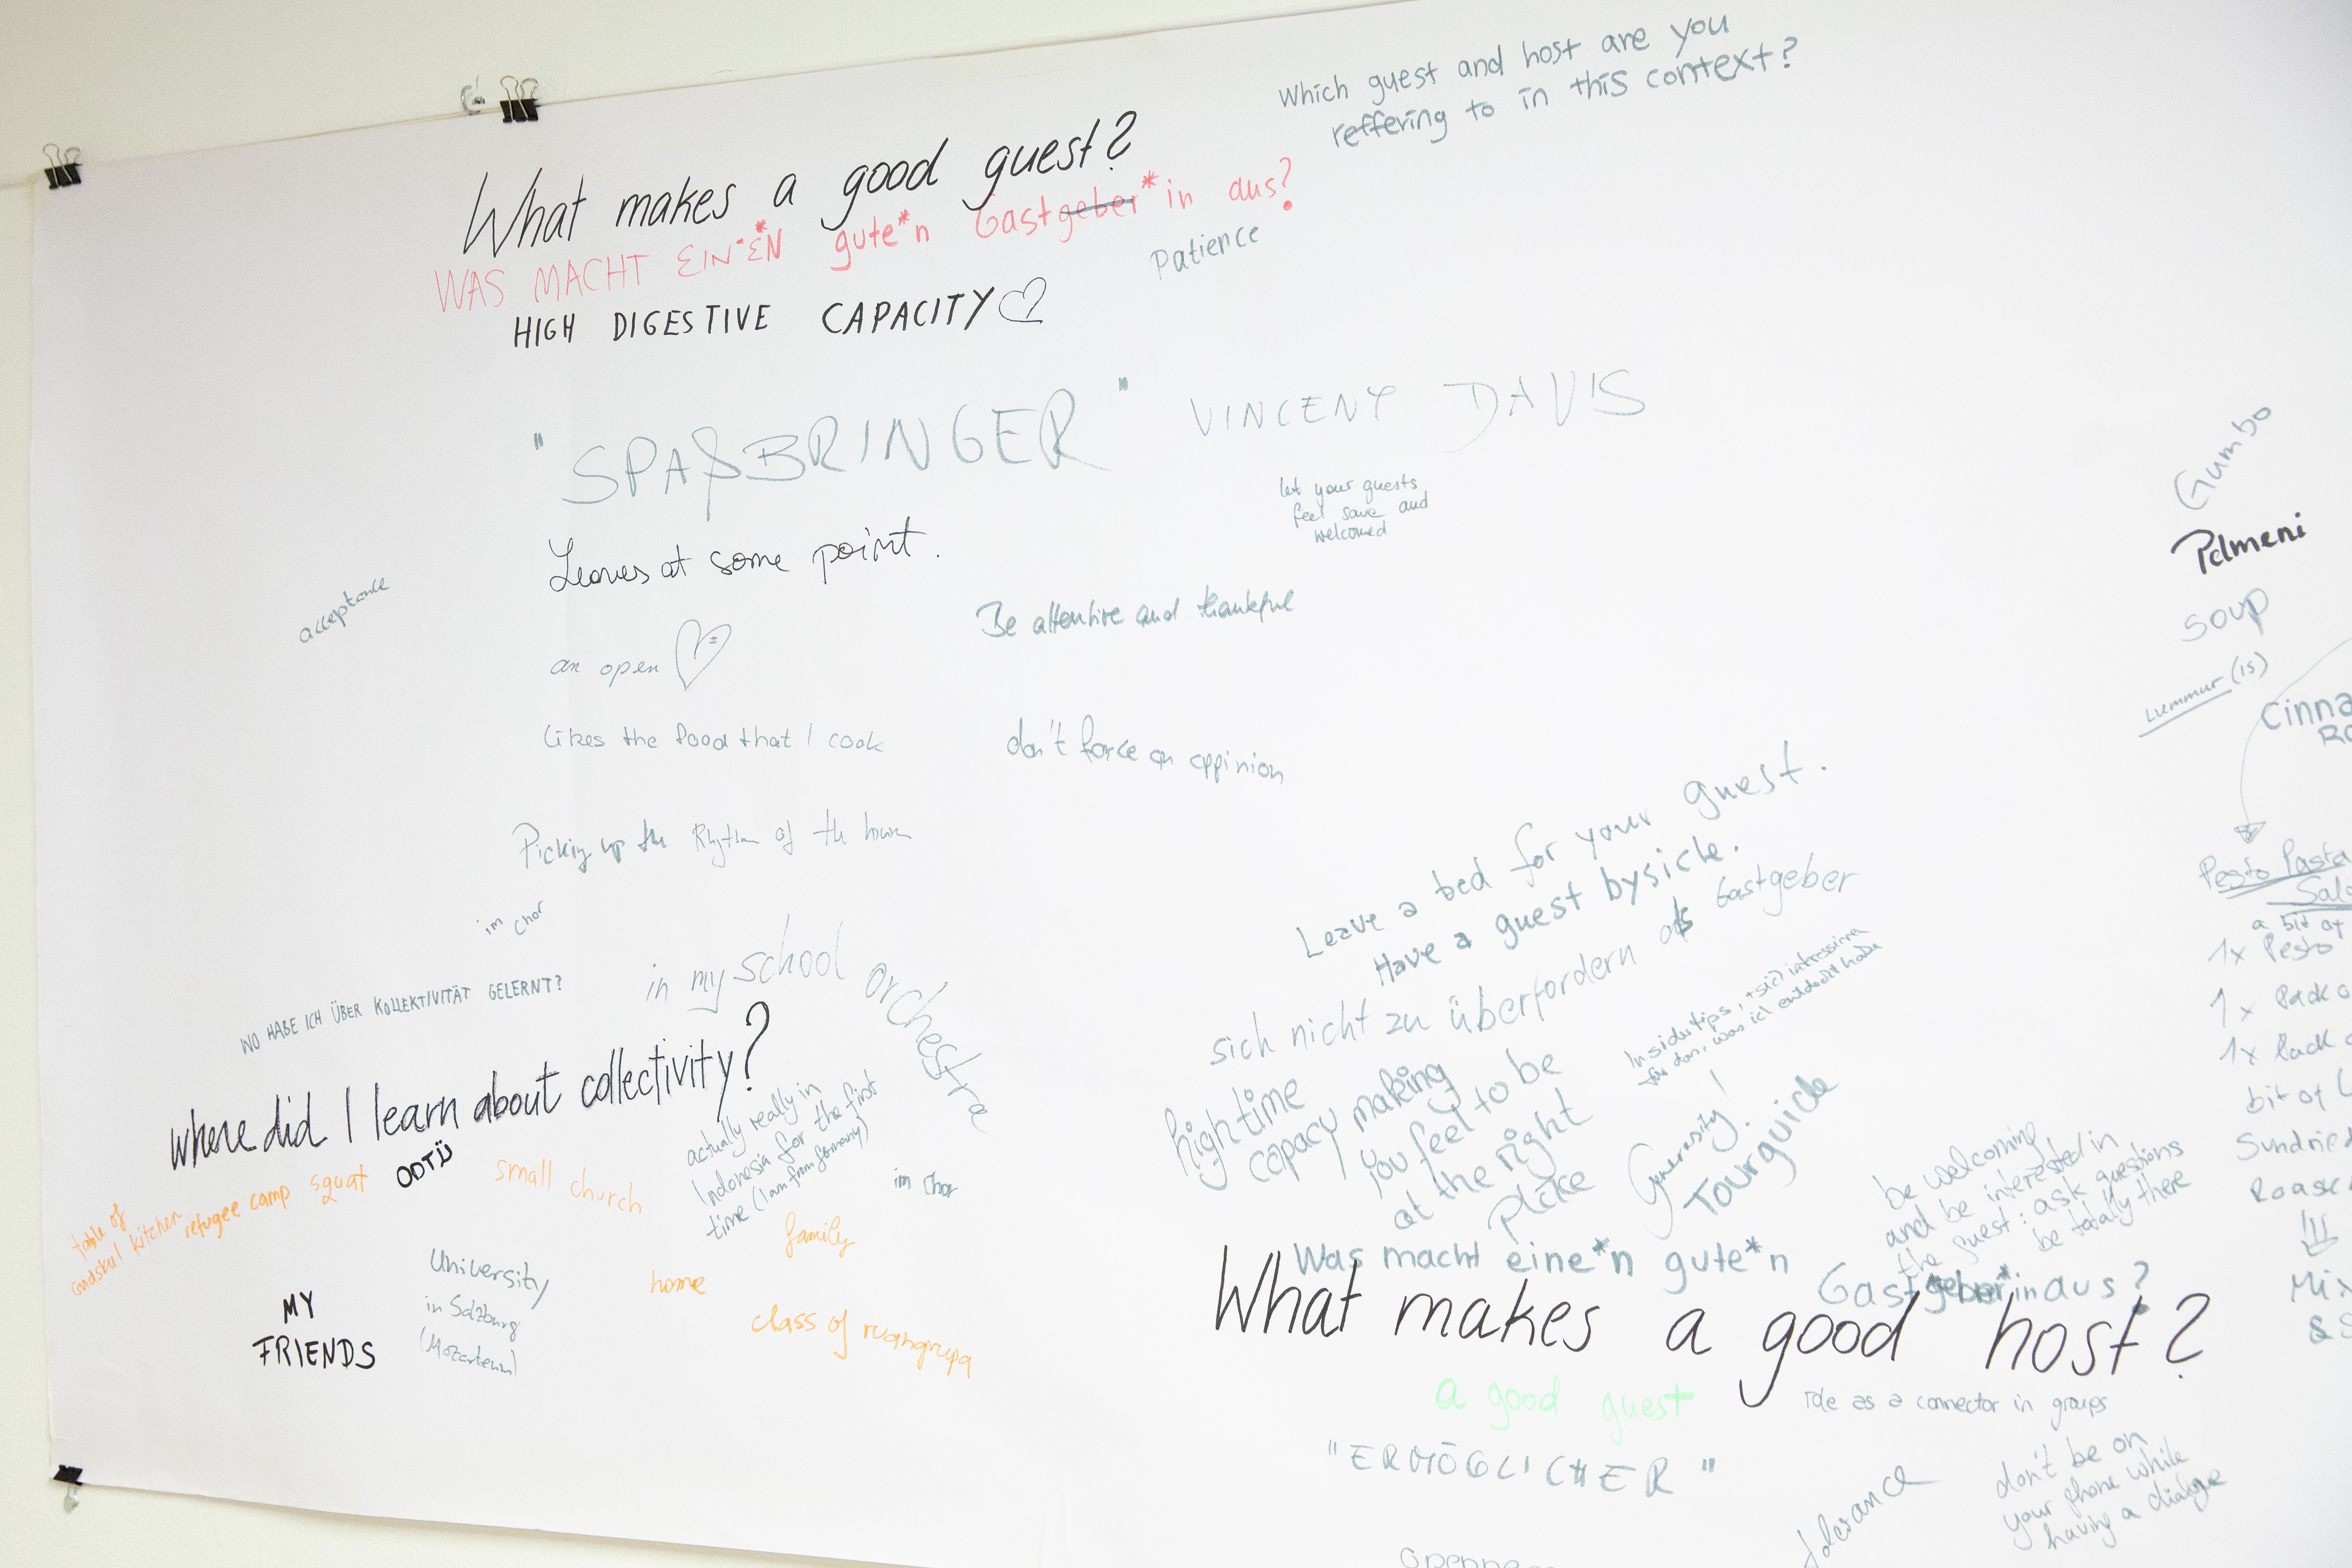 Which guest and host are you
reffering to in this context?
What makes a good guest?
WAS MACHT EIN*EN gute*n Gastgeber*in aus?
Patience
HIGH DIGESTIVE CAPACITY
"SPAßBRINGER" VINCENT DAVIS
let your guests
feel save and
welcomed
Leaves at some point.
acceptance
Be attentive and thankful
an open
Likes the food that I cook
don't force an oppinion
Picking up the Rhythm of the
im Chor
WO HABE ICH ÜBER KOLLEKTIVITÄT GELERNT?
in my school orchestra
where did I learn about collectivity?
actually really in
Indonesia for the first
time (I am from Germany)
table of
kitchen
refugee camp
squat
ODTÜ
small church
im Chor
family
home
class of ruangrupa
MY
FRIENDS
University
in Salzburg
(Mozarteum)
Gumbo
Pelmeni
soup
Lummur (is)
Cinna
Ro
Pesto Pasta
Sala
a bit of
1x Pesto
1x Pack o
1x Pack o
bit of
Sundried
Mix
&
Leave a bed for your guest.
Have a guest bysicle.
sich nicht zu überfordern als Gastgeber
Insidertips, + sich interessieren
für das, was ich entdeckt habe
high time
capacy making
you feel to be
at the right
place
Generosity!
Tourguide
be welcoming
and be interested in
the guest: ask questions
be totally there
Was macht eine*n gute*n
Gastgeber*in aus?
What makes a good host?
a good guest
role as a connector in groups
"ERMÖGLICHER"
don't be on
your phone while
having a dialogue
tolerance